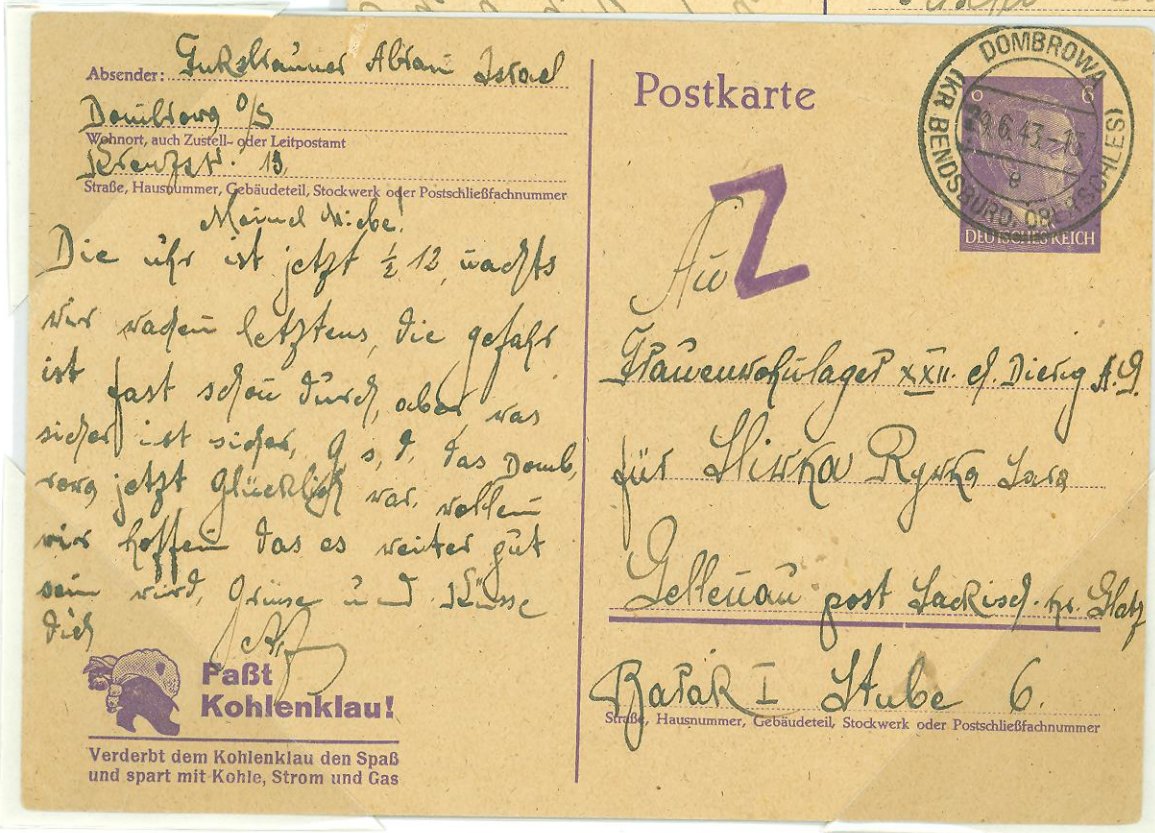 Absender: Abram Israel
Dombrowa O/S
Wohnort, auch Zustell- oder Leitpostamt
Kreuzstr. 13
Straße, Hausnummer, Gebäudeteil, Stockwerk oder Postschließfachnummer
Liebe!
Die uhr ist jetzt ½ 12 nachts
wir wachen letztens, die gefahr
ist fast schon durch, aber was
sicher ist sicher, G. s. d. das Domb,
rowa jetzt Glücklich war, wollen
wir hoffen das es weiter gut
sein wird, Grüsse und Küsse
dich
Paßt
Kohlenklau!
Verderbt dem Kohlenklau den Spaß
und spart mit Kohle, Strom und Gas
Postkarte
DOMBROWA (SCHLES)
(KR BENDSBURG, OBERSCHLES)
29.6.43.-13
a
6 6
DEUTSCHES REICH
Z
An
Frauenwohnlager XXII. Ch. Dierig A.G.
für Rywka Sara
Gellenau post Sackisch kr. Glatz
Barak I Stube 6.
Straße, Hausnummer, Gebäudeteil, Stockwerk oder Postschließfachnummer